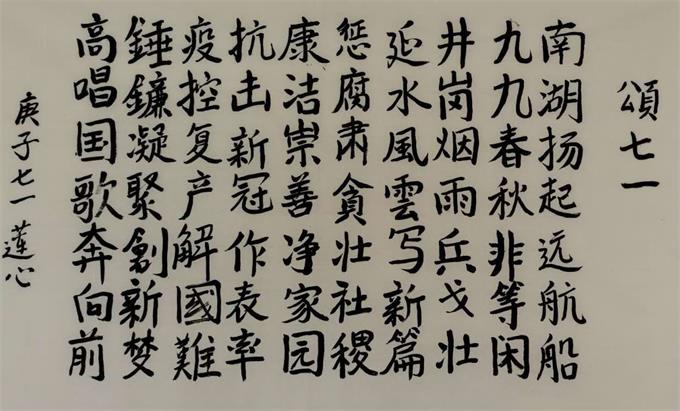 頌七一
南湖扬起远航船
九九春秋非等闲
井岗烟雨兵戈壮
延水風雲写新篇
惩腐肃貪壮社稷
康洁崇善净家园
抗击新冠作表率
疫控复产解國難
錘鐮凝聚創新梦
高唱国歌奔向前
庚子七一蓮心